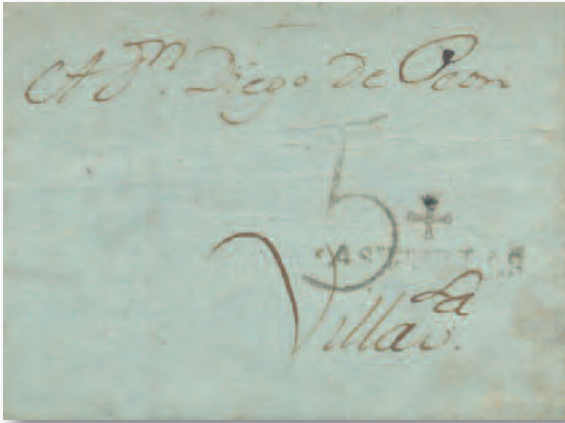 A Dn. Diego de Peon
5
Villav.sa